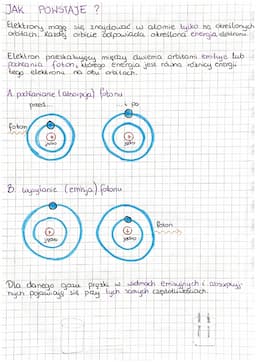 JAK POWSTAJE ?
Elektrony mogą się znajdować w atomie tylko na określonych
orbitach. Każdej orbicie odpowiada określona energia elektronu.
Elektron przeskakujący między dwiema orbitami emituje lub
pochłania foton, którego energia jest równa różnicy energii
tego elektronu na obu orbitach.
A. pochłanianie (absorpcja) fotonu
przed... i po
foton
jądro jądro
B. wysyłanie (emisja) fotonu
jądro jądro
foton
Dla danego gazu prążki w widmach emisyjnych i absorpcyj-
nych pojawiają się przy tych samych częstotliwościach.